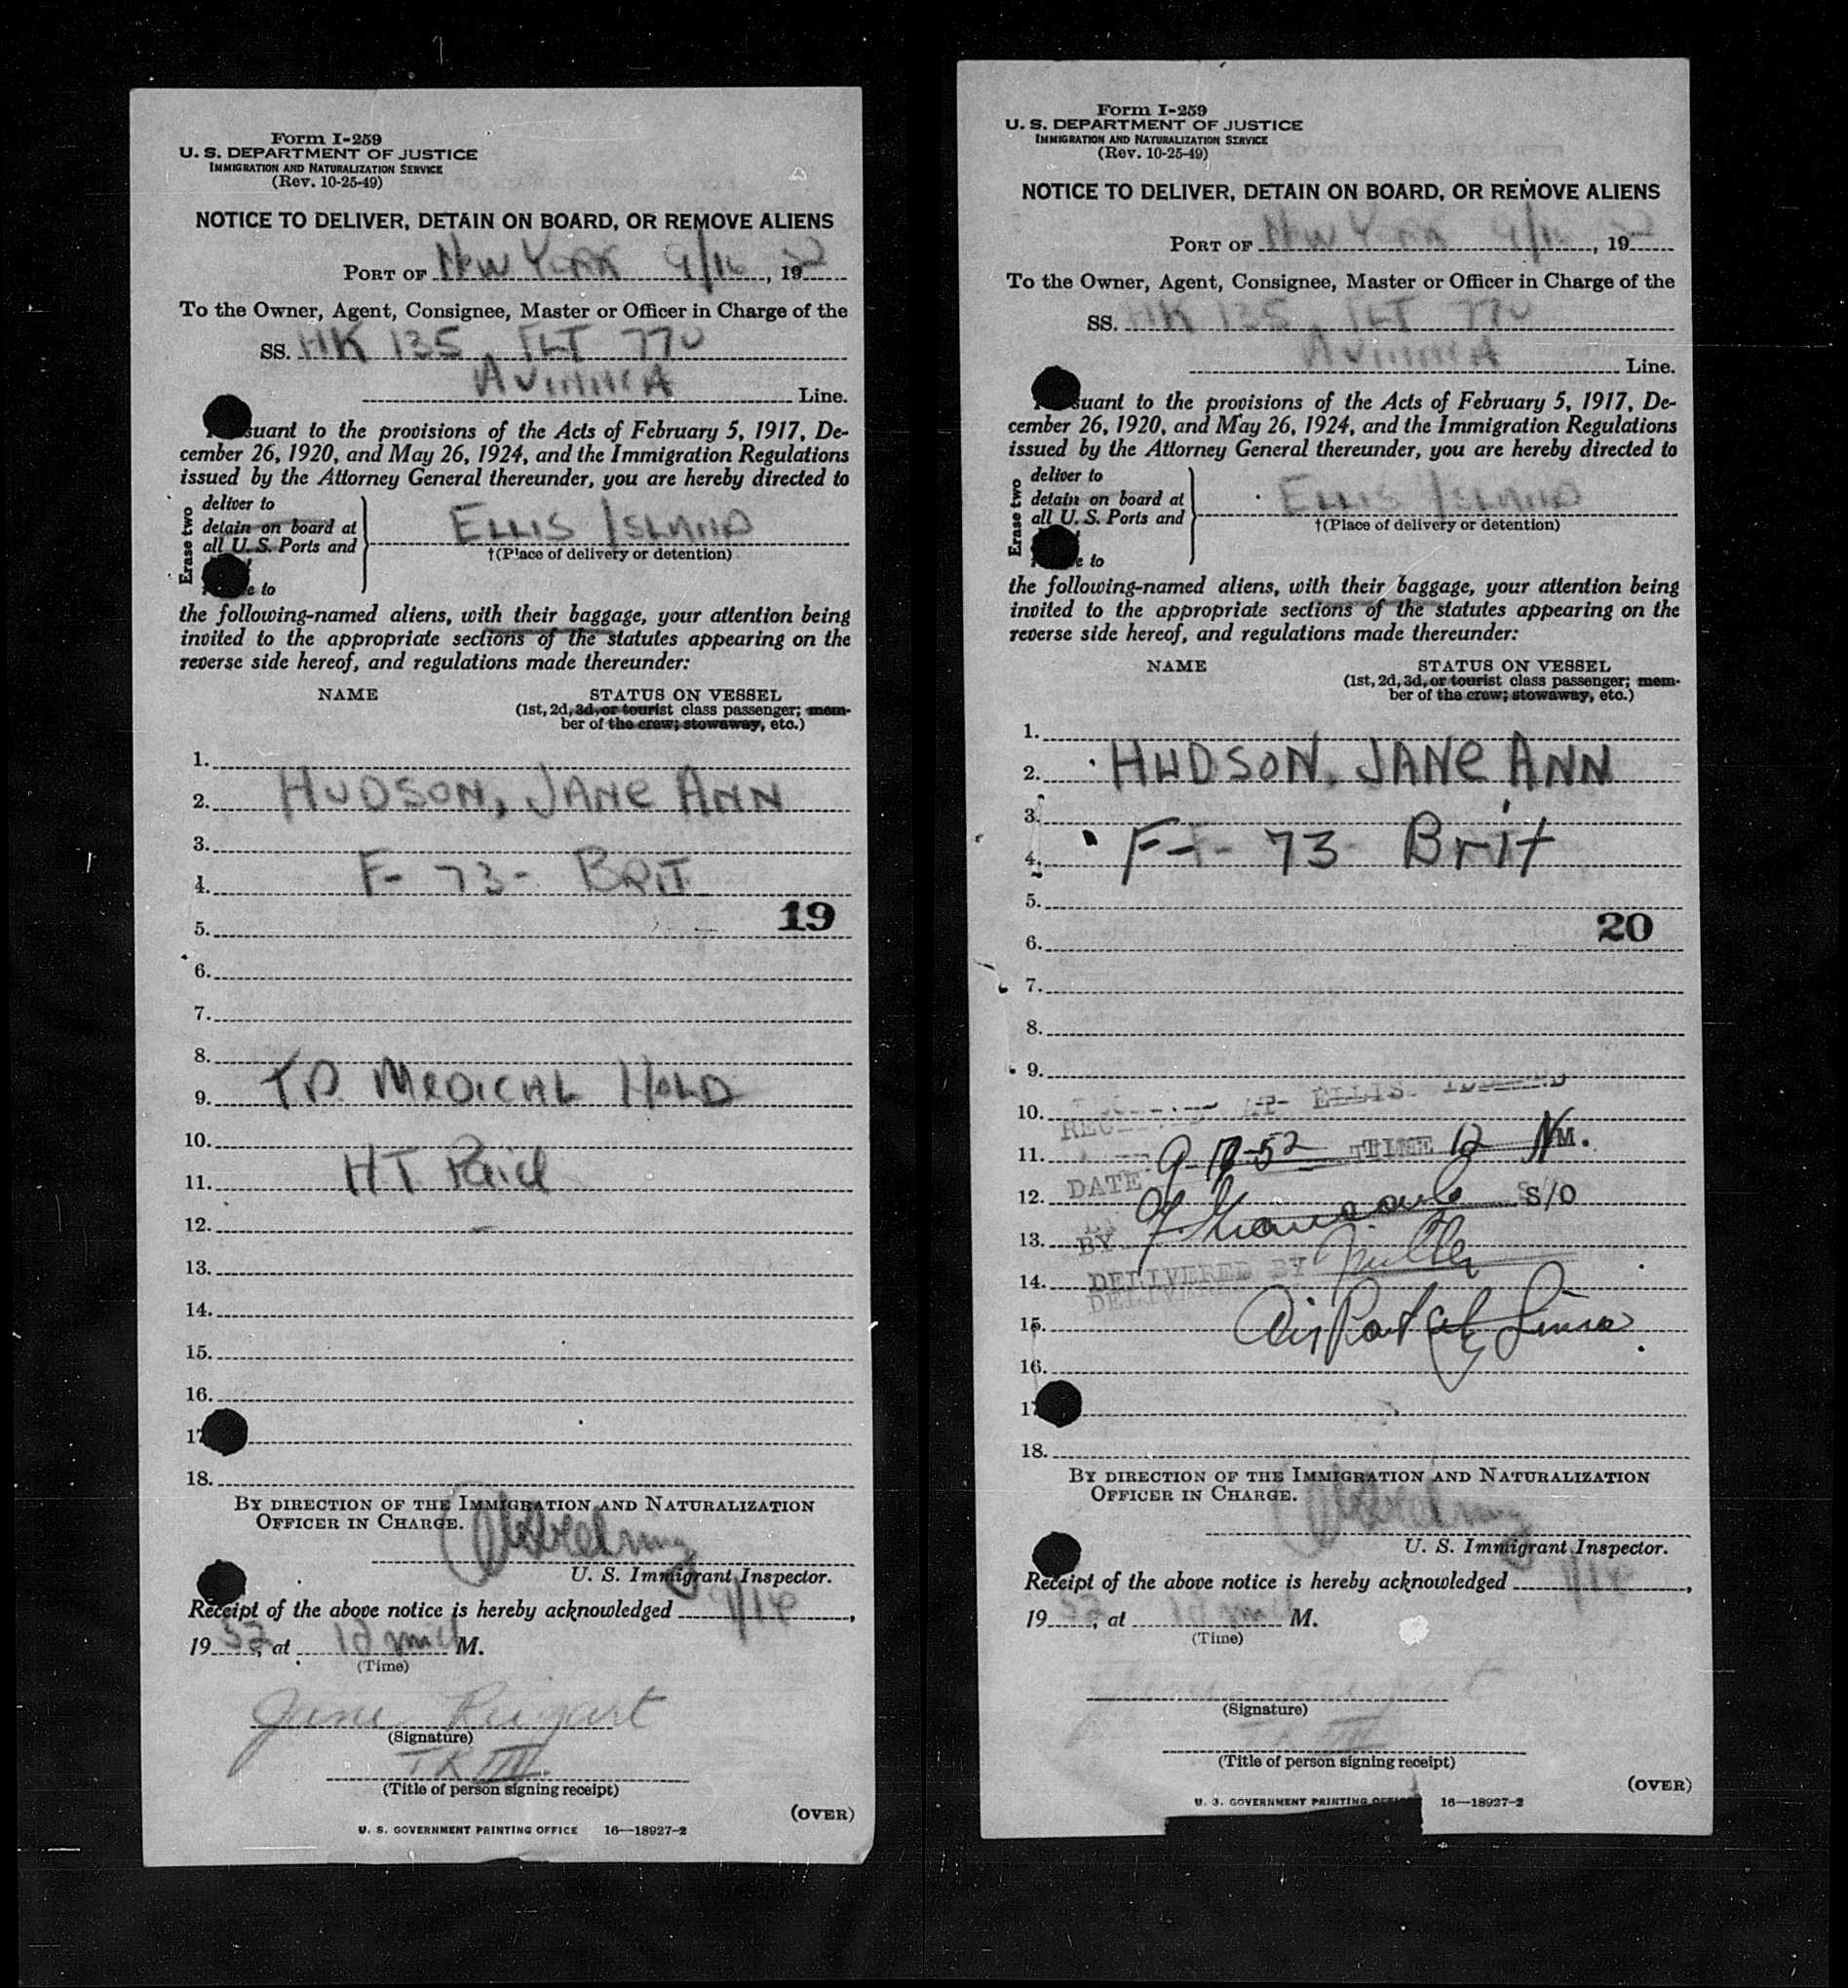 Form I-259
U. S. DEPARTMENT OF JUSTICE
IMMIGRATION AND NATURALIZATION SERVICE
(Rev. 10-25-49)
NOTICE TO DELIVER, DETAIN ON BOARD, OR REMOVE ALIENS
PORT OF New York 9/16, 1952
To the Owner, Agent, Consignee, Master or Officer in Charge of the
SS. HK 135 FLT 770
AVIANCA Line.
suant to the provisions of the Acts of February 5, 1917, De-
cember 26, 1920, and May 26, 1924, and the Immigration Regulations
issued by the Attorney General thereunder, you are hereby directed to
Erase two
deliver to
detain on board at
all U. S. Ports and
to
ELLIS ISLAND
†(Place of delivery or detention)
the following-named aliens, with their baggage, your attention being
invited to the appropriate sections of the statutes appearing on the
reverse side hereof, and regulations made thereunder:
NAME STATUS ON VESSEL
(1st, 2d, 3d, or tourist class passenger; mem-
ber of the crew; stowaway, etc.)
1.
2. HUDSON, JANE ANN
3.
4. F- 73- BRIT
19
5.
6.
7.
8.
9. T.D. MEDICAL HOLD
10.
11. HT Paid
12.
13.
14.
15.
16.
17
18.
BY DIRECTION OF THE IMMIGRATION AND NATURALIZATION
OFFICER IN CHARGE.
U. S. Immigrant Inspector.
Receipt of the above notice is hereby acknowledged 9/16,
1952, at 12 mid M.
(Time)
(Signature)
(Title of person signing receipt)
(OVER)
U. S. GOVERNMENT PRINTING OFFICE 16—18927-2
Form I-259
U. S. DEPARTMENT OF JUSTICE
IMMIGRATION AND NATURALIZATION SERVICE
(Rev. 10-25-49)
NOTICE TO DELIVER, DETAIN ON BOARD, OR REMOVE ALIENS
PORT OF New York 9/16, 1952
To the Owner, Agent, Consignee, Master or Officer in Charge of the
SS. HK 135 FLT 770
AVIANCA Line.
suant to the provisions of the Acts of February 5, 1917, De-
cember 26, 1920, and May 26, 1924, and the Immigration Regulations
issued by the Attorney General thereunder, you are hereby directed to
Erase two
deliver to
detain on board at
all U. S. Ports and
to
ELLIS ISLAND
†(Place of delivery or detention)
the following-named aliens, with their baggage, your attention being
invited to the appropriate sections of the statutes appearing on the
reverse side hereof, and regulations made thereunder:
NAME STATUS ON VESSEL
(1st, 2d, 3d, or tourist class passenger; mem-
ber of the crew; stowaway, etc.)
1.
2. HUDSON, JANE ANN
3.
4. F- 73 Brit
5.
20
6.
7.
8.
9.
10. RECEIVED AT ELLIS ISLAND
11. DATE 9-17-52 TIME 12 NM.
12. S/O
13. BY
14. DELIVERED BY Miller
15.
16.
17
18.
BY DIRECTION OF THE IMMIGRATION AND NATURALIZATION
OFFICER IN CHARGE.
U. S. Immigrant Inspector.
Receipt of the above notice is hereby acknowledged 9/16,
1952, at 12 mid M.
(Time)
(Signature)
(Title of person signing receipt)
(OVER)
U. S. GOVERNMENT PRINTING OFFICE 16—18927-2